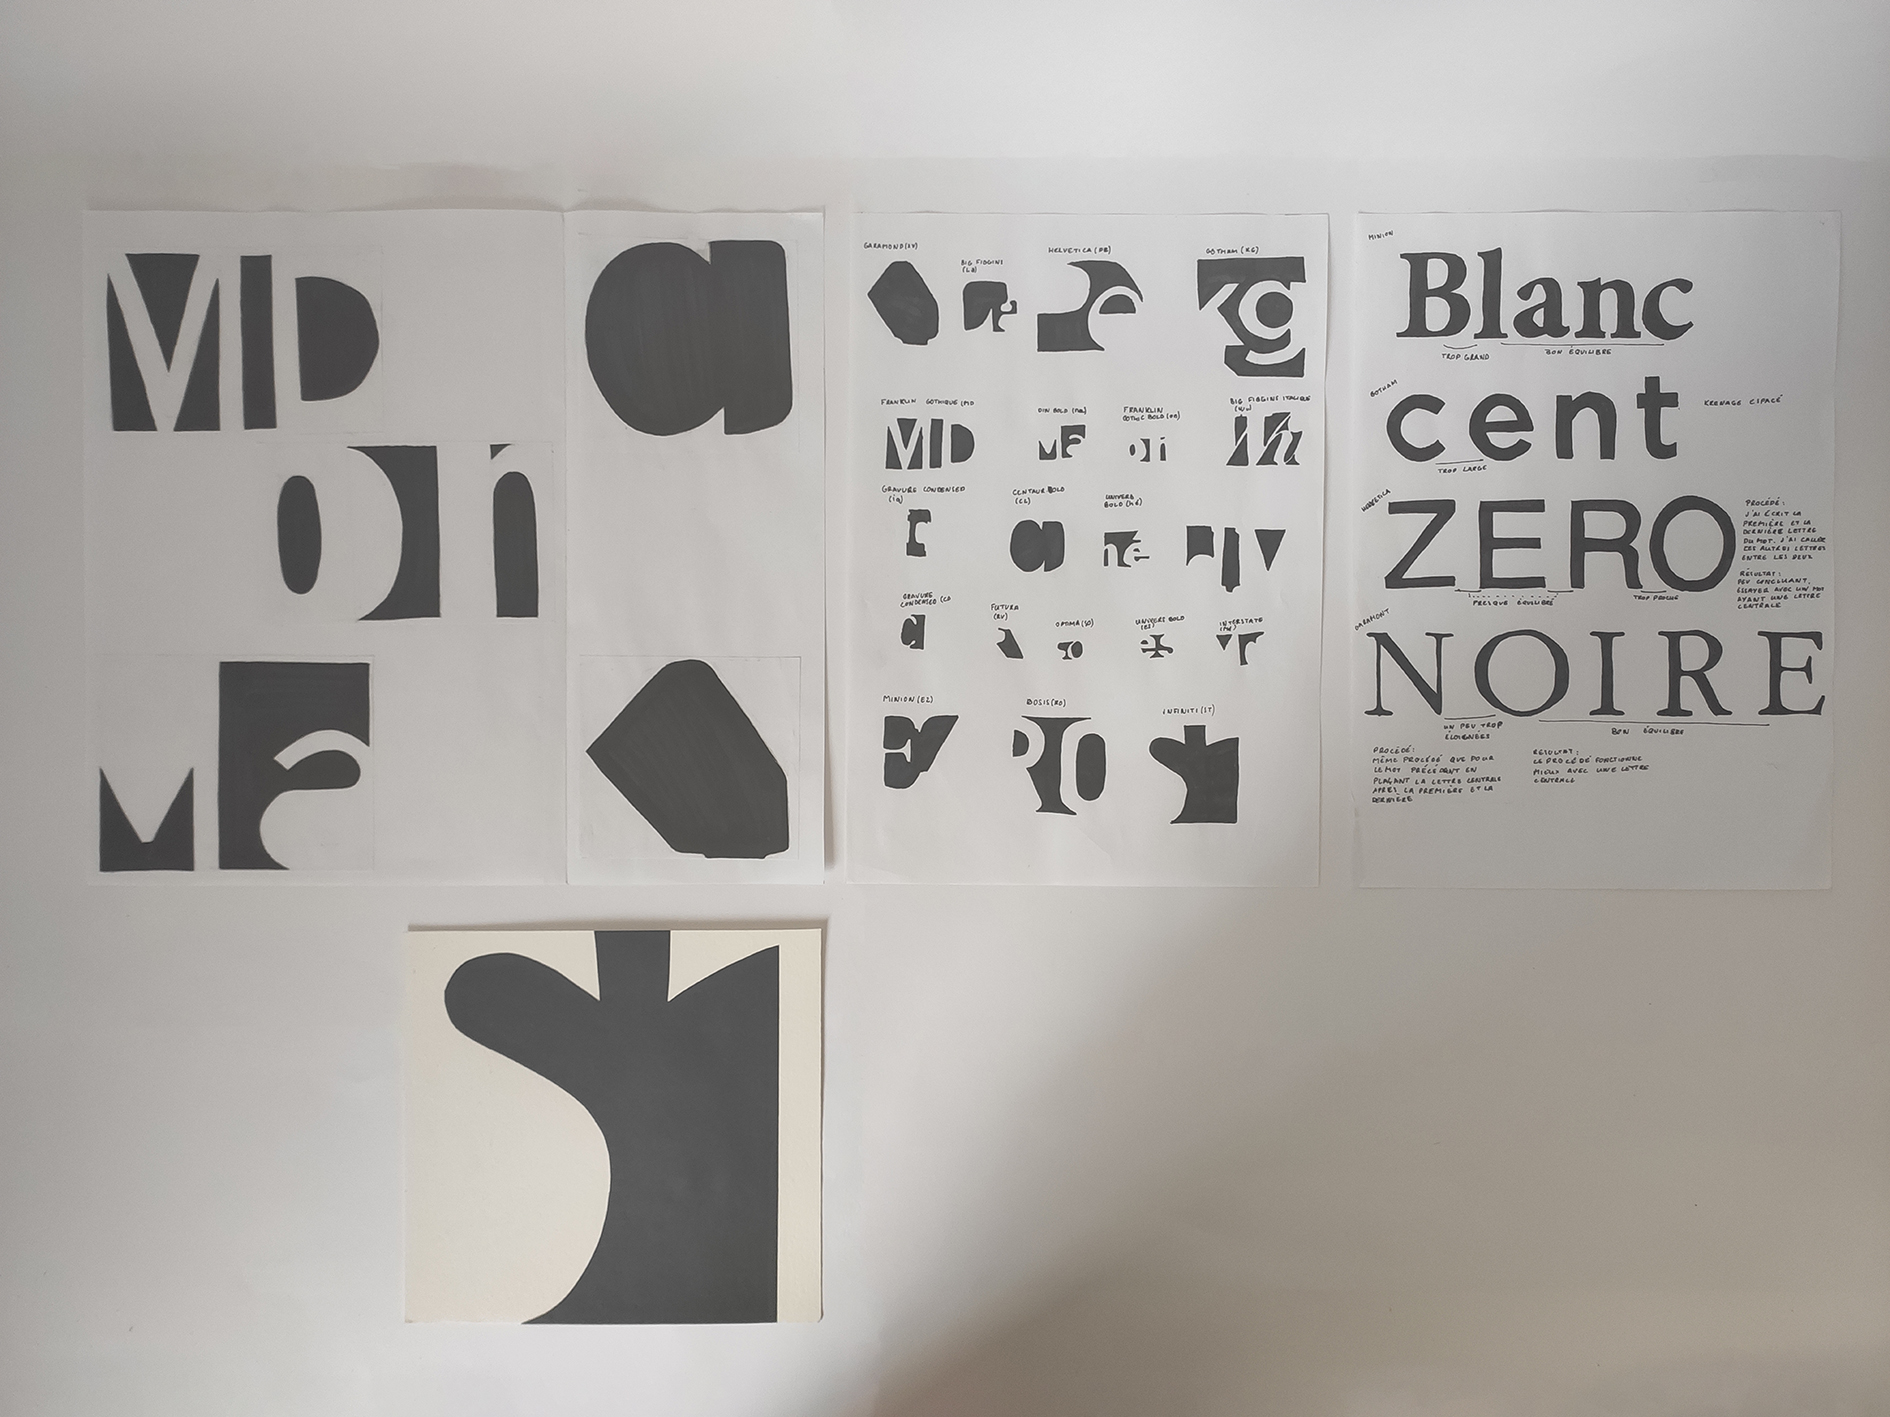 GARAMOND (LV)
BIG FIGGINS
(La)
HELVETICA (Pe)
GOTHAM (KG)
FRANKLIN GOTHIQUE (MD
DIN BOLD (Ma)
FRANKLIN
GOTHIC BOLD (on)
BIG FIGGINS ITALIQUE
GRAVURE CONDENSED
CENTAUR BOLD
UNIVERS
BOLD (né)
GRAVURE
CONDENSED (Cd
FUTURA
(RV)
OPTIMA (SO)
UNIVERS BOLD
INTERSTATE
MINION (EZ)
DOSIS (RO)
INFINITI (ST)
MINION
Blanc
TROP GRAND
BON ÉQUILIBRE
GOTHAM
cent
KRENAGE ESPACÉ
TROP LARGE
HELVETICA
ZERO
PRESQUE ÉQUILIBRÉ
TROP PROCHE
PROCÉDÉ:
J'AI ÉCRIT LA
PREMIÈRE ET LA
DERNIÈRE LETTRE
DU MOT. J'AI CALLÉE
LES AUTRES LETTRES
ENTRE LES DEUX
RÉSULTAT:
PEU CONCLUANT,
ESSAYER AVEC UN MOT
AYANT UNE LETTRE
CENTRALE
GARAMONT
NOIRE
UN PEU TROP
ÉLOIGNÉES
BON ÉQUILIBRE
PROCÉDÉ:
MÊME PROCÉDÉ QUE POUR
LE MOT PRÉCÉDENT EN
PLAÇANT LA LETTRE CENTRALE
APRÈS LA PREMIÈRE ET LA
DERNIÈRE
RÉSULTAT:
LE PROCÉDÉ FONCTIONNE
MIEUX AVEC UNE LETTRE
CENTRALE